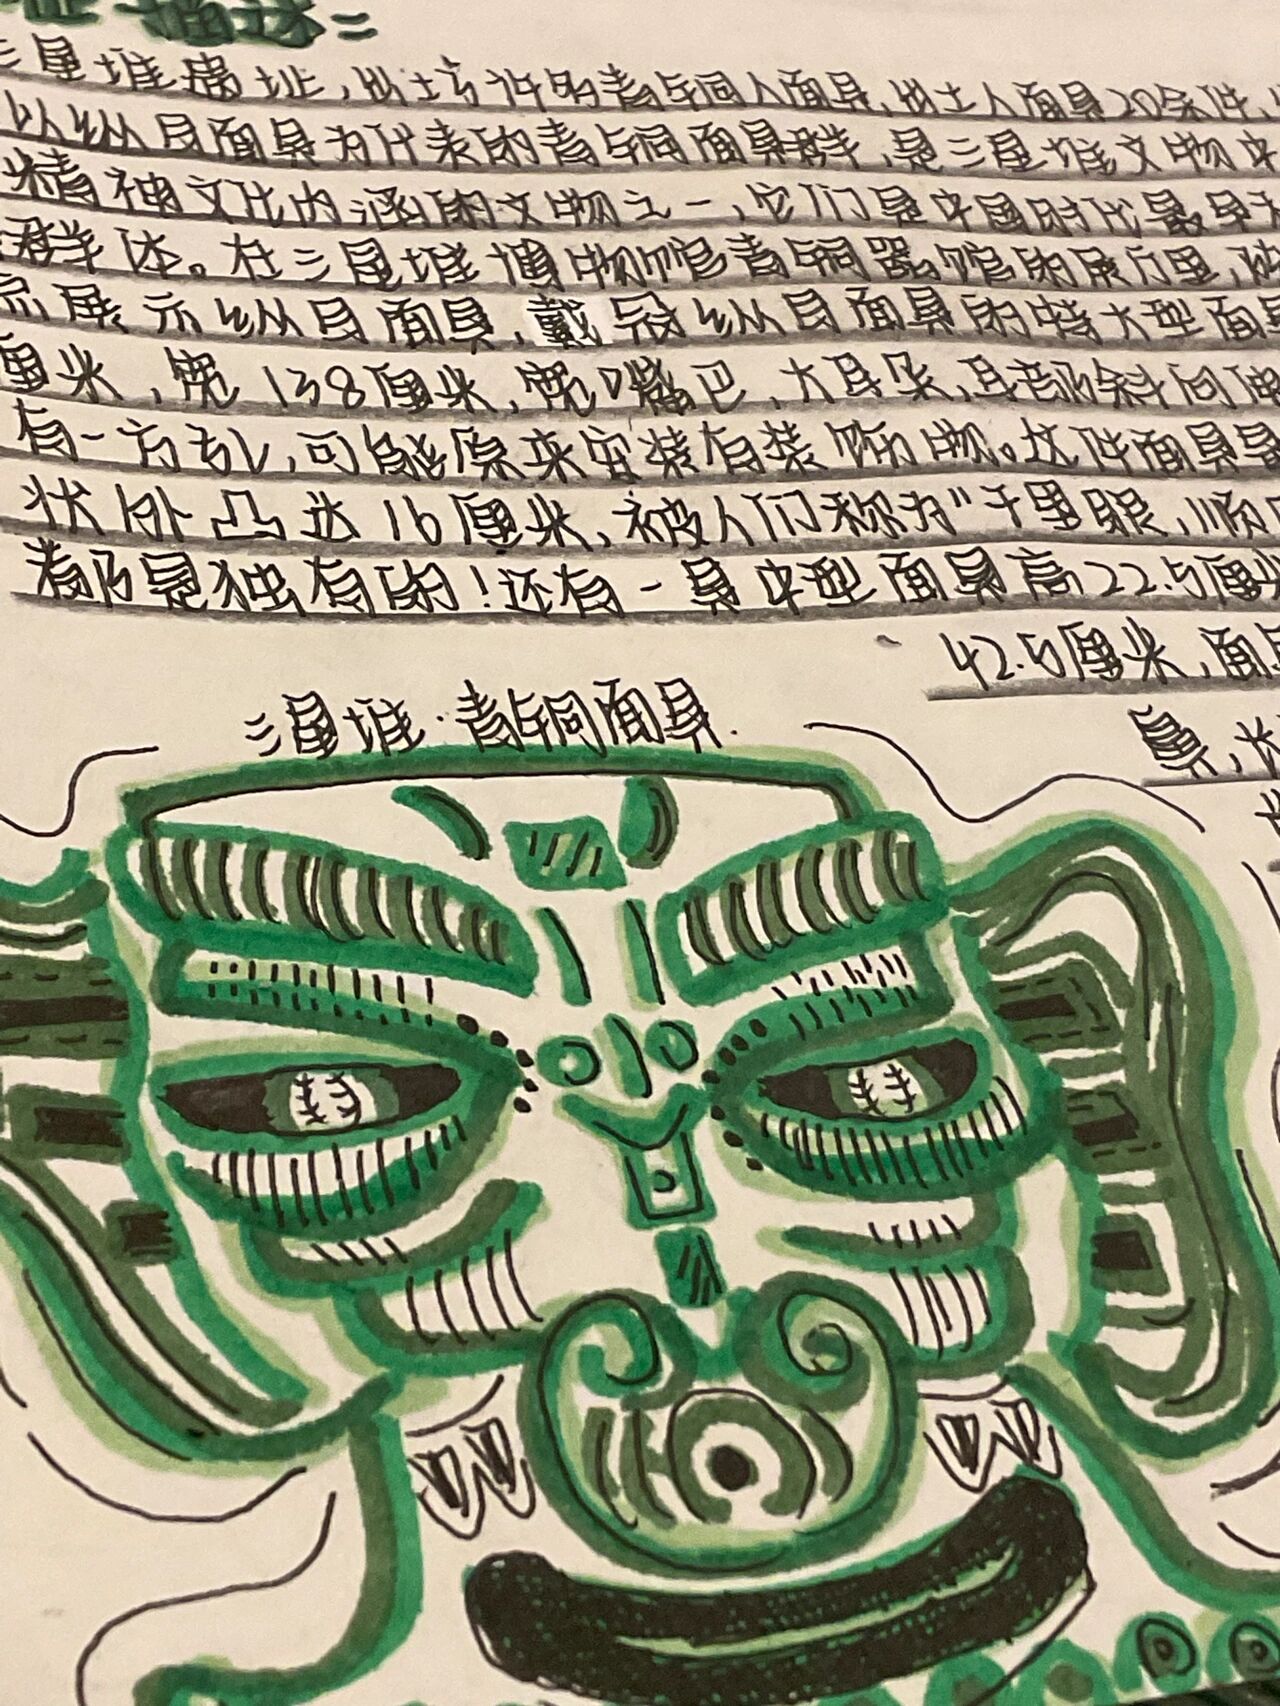 描述：
三星堆遗址，出土有许多青铜人面具，出土人面具20余件，
以纵目面具为代表的青铜面具群，是三星堆文物中
精神文化内涵的文物之一，它们是中国时代最早
群体。在三星堆博物馆青铜器馆的展厅里，
展示纵目面具，戴冠纵目面具的特大型面具
厘米，宽138厘米，宽嘴巴，大耳朵，耳部斜向
有一方孔，可能原来安装有装饰物。这件面具
状外凸达16厘米，被人们称为"千里眼，顺
都是独有的！还有一具中型面具高22.5厘米
42.5厘米，面
具，
三星堆·青铜面具.